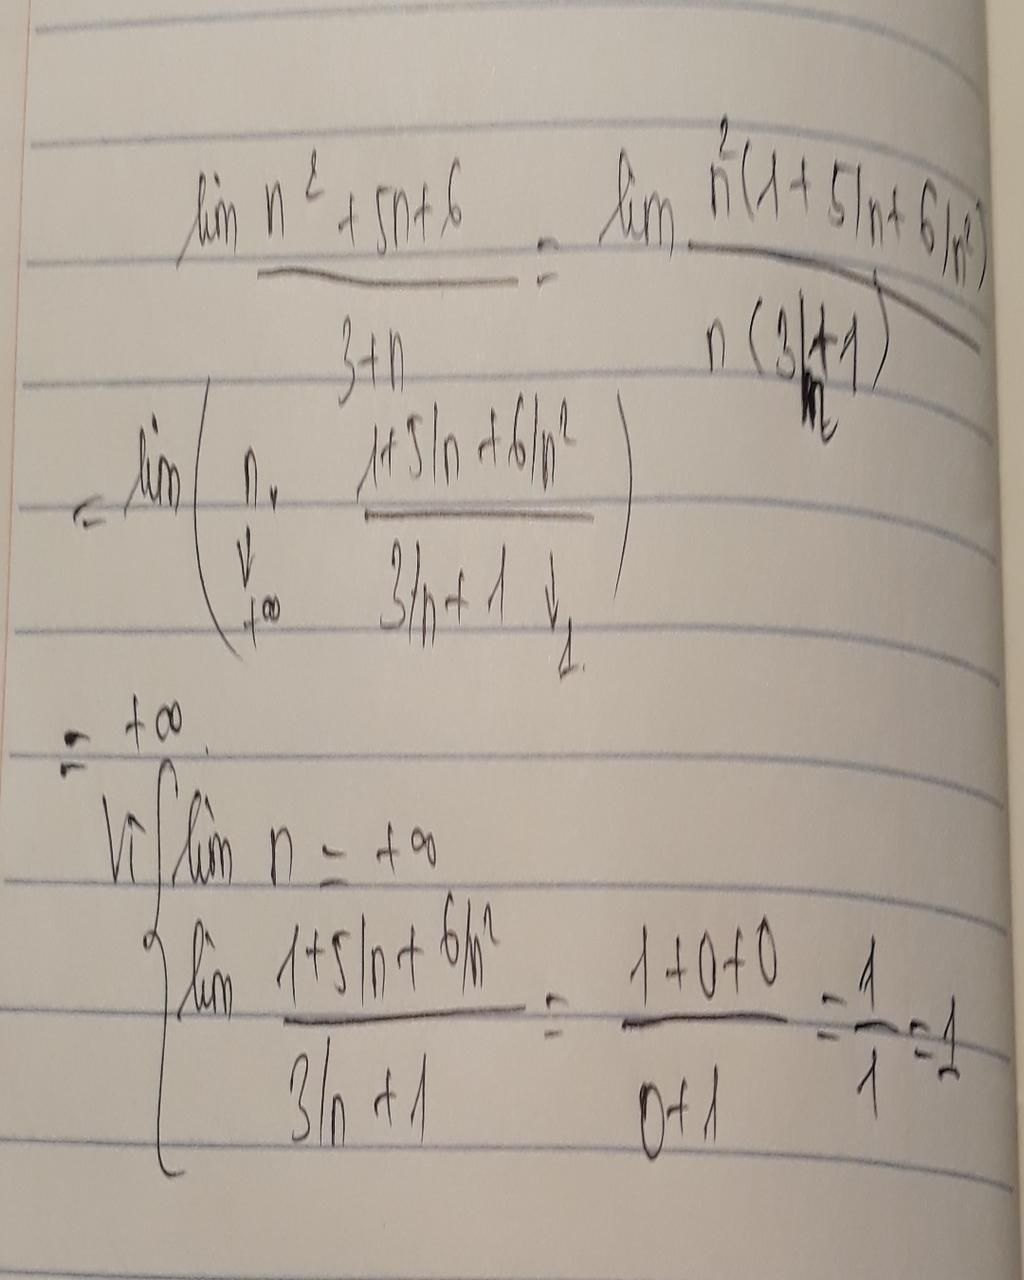 lim (n² + 5n + 6)/(3 + n) = lim n²(1 + 5/n + 6/n²)/(n(3/n + 1))
= lim ( n . (1 + 5/n + 6/n²)/(3/n + 1) )
↓ +∞ ↓ 1
= +∞.
Vì { lim n = +∞
lim (1 + 5/n + 6/n²)/(3/n + 1) = (1 + 0 + 0)/(0 + 1) = 1/1 = 1